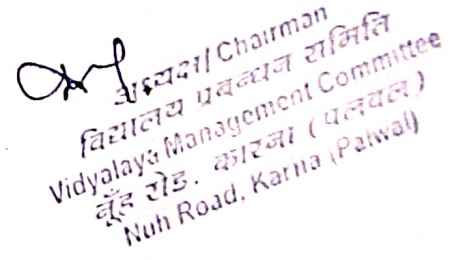 अध्यक्ष/ Chairman
विद्यालय प्रबन्धन समिति
Vidyalaya Management Committee
नूँह रोड. कारना (पलवल)
Nuh Road, Karna (Palwal)